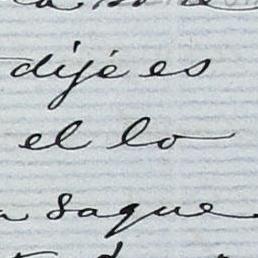 dije es
el lo
saque